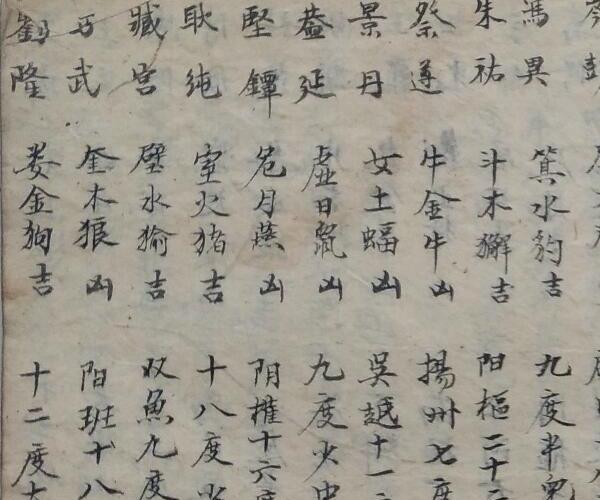 馮異 箕水豹吉 九度半
朱祐 斗木獬吉 阳樞二十二
祭遵 牛金牛凶 揚州七度
景丹 女土蝠凶 吳越十一
蓋延 虛日鼠凶 九度少
堅鐔 危月燕凶 阴權十六度
耿純 室火猪吉 十八度少
臧宮 壁水貐吉 双魚九度
马武 奎木狼凶 阳班十八
劉隆 娄金狗吉 十二度